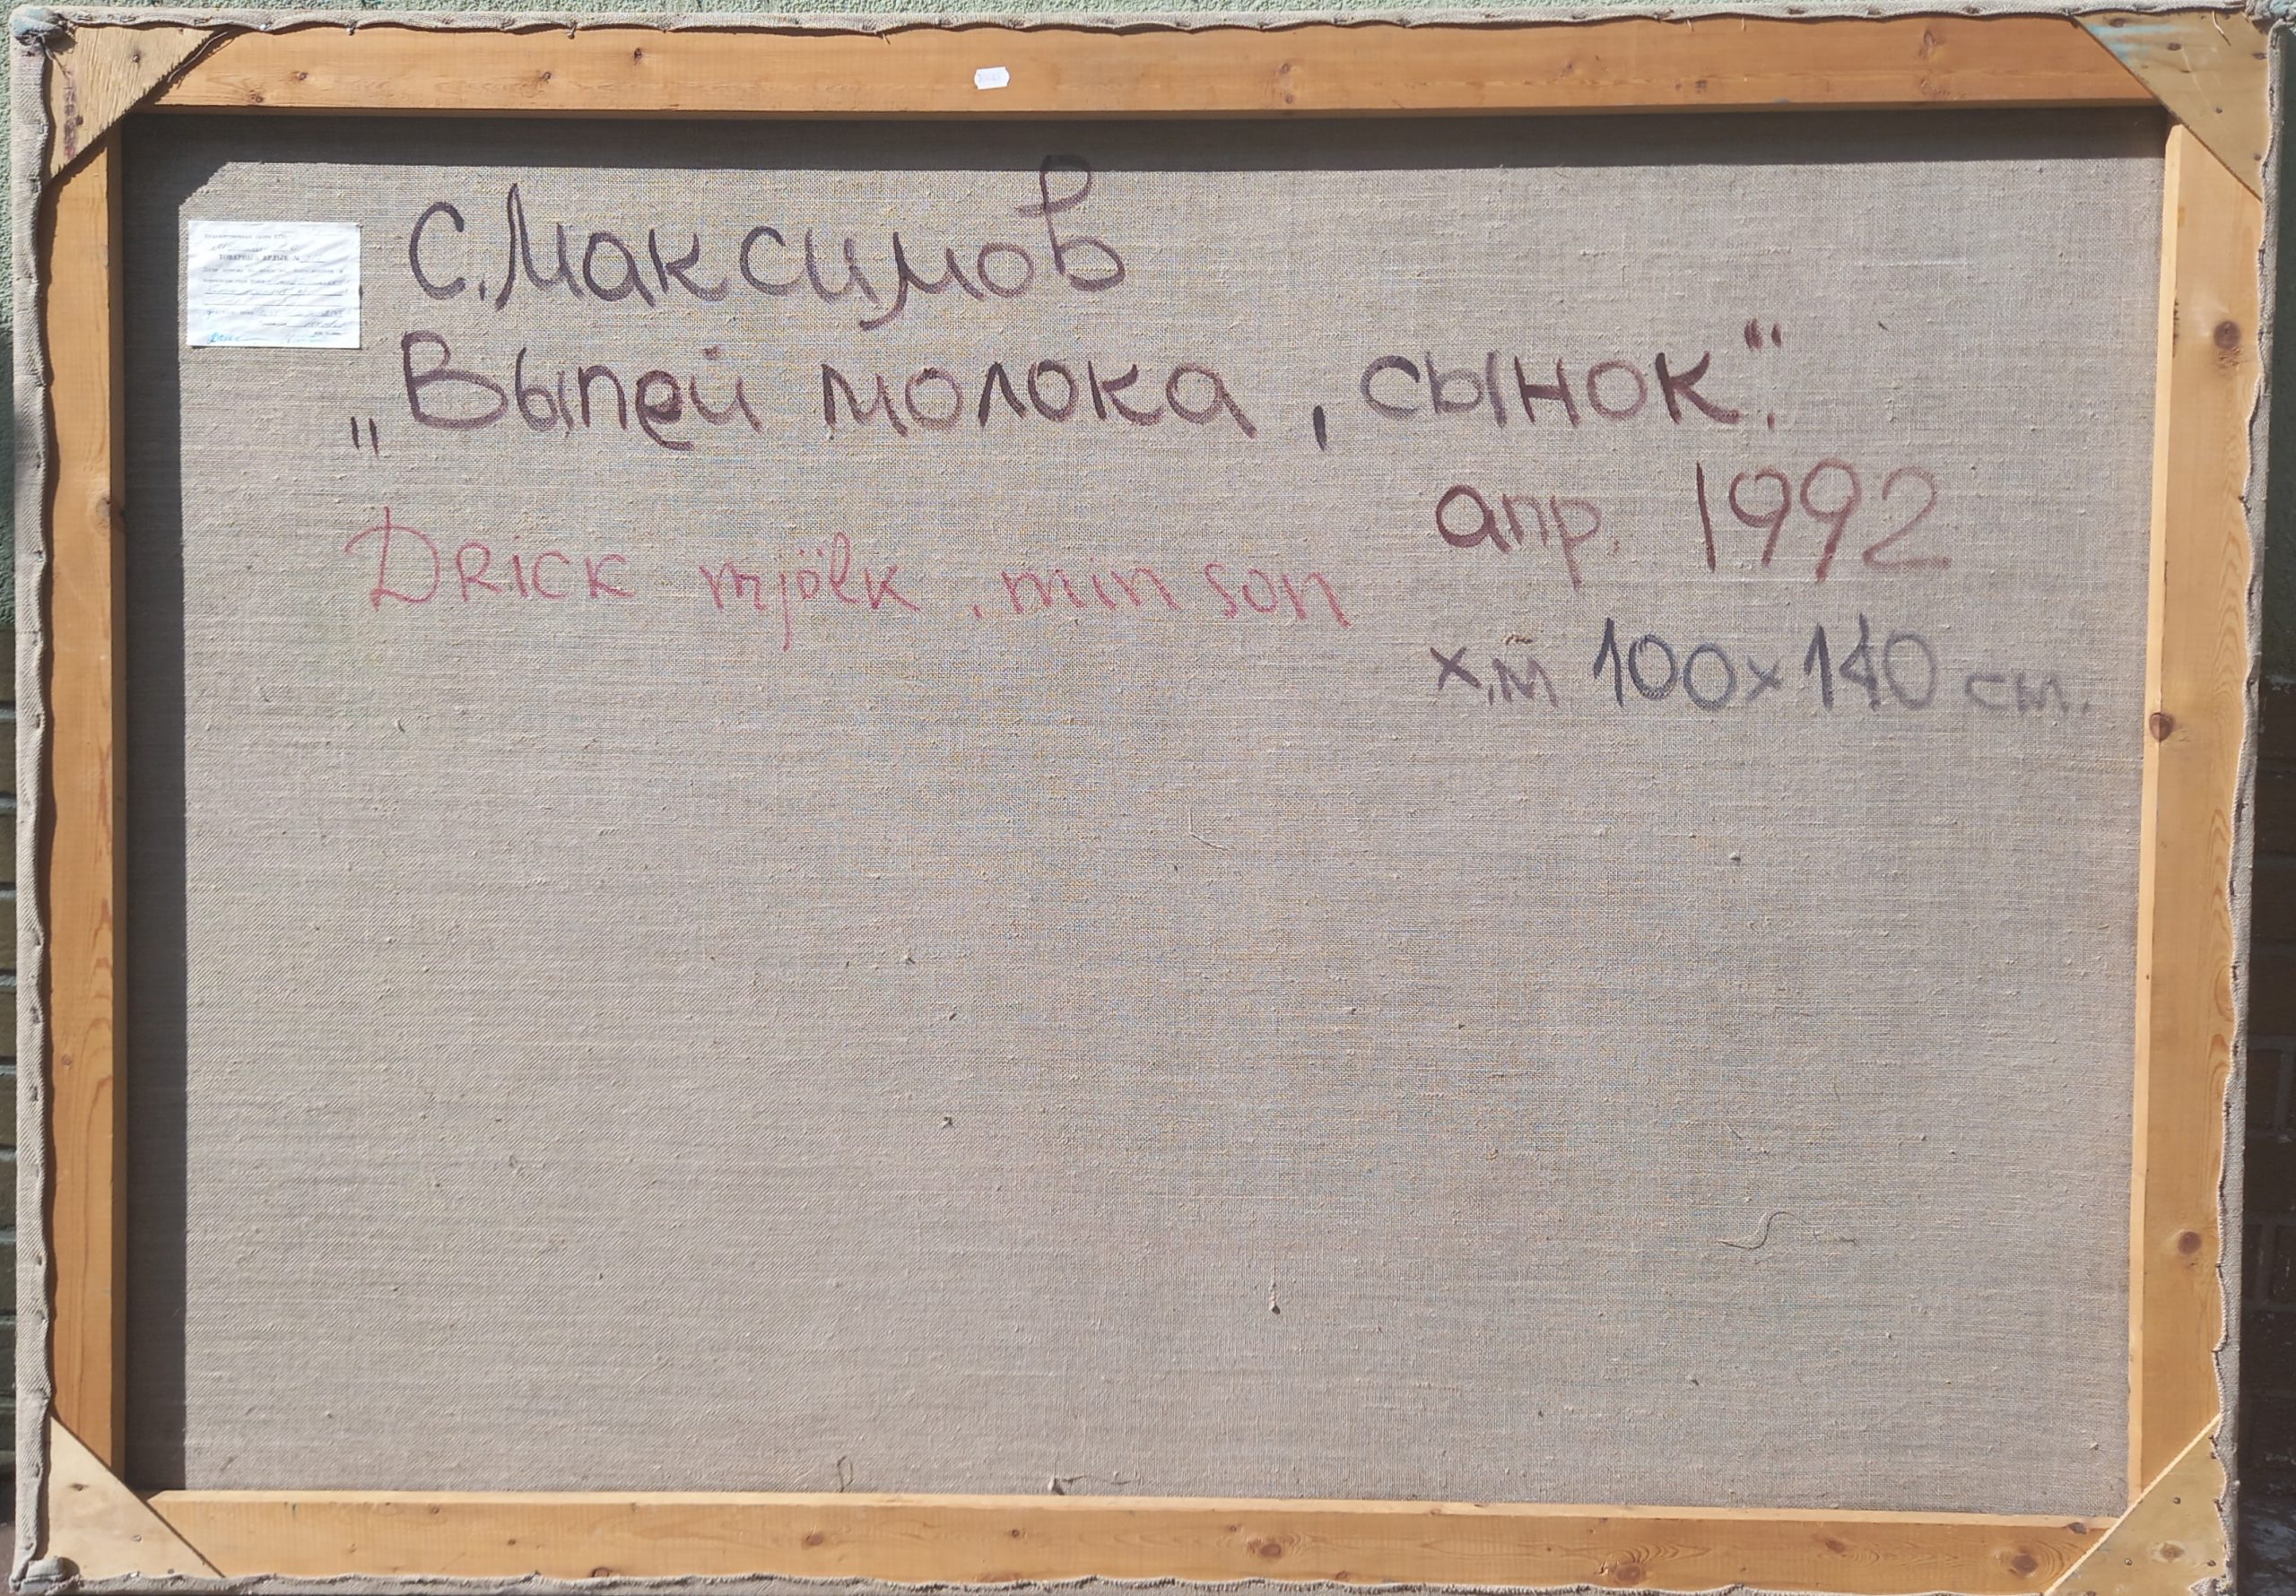 С. Максимов
„Выпей молока, сынок“.
апр. 1992
DRICK mjölk, min son
х,м 100х140 см.
ТОВАРНЫЙ ЯРЛЫК №